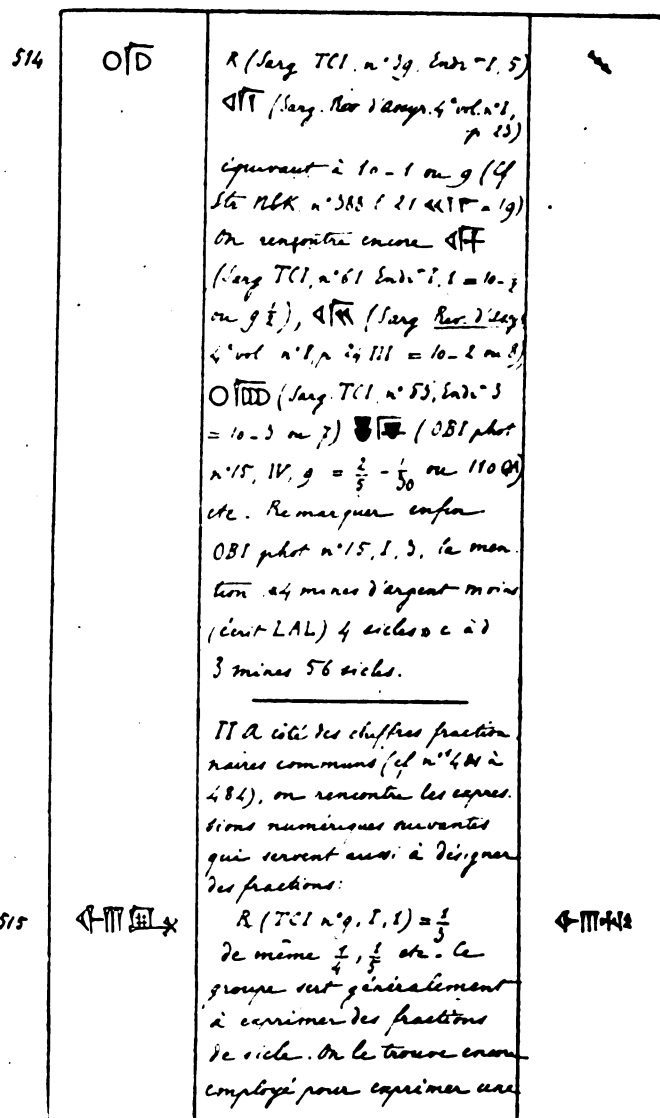 514
R (Sarg TCI, n° 39, Endr- I, 5)
(Sarg. Rev d'assyr. 4° vol. n° I,
p 23)
équivaut à 10 - 1 ou 9 (Cf
Str NbK n° 388 l 21 = 19)
On rencontre encore
(Sarg TCI, n° 61 Endr- I, 1 = 10 - ½
ou 9 ½), (Sarg Rev. d'assyr
4° vol n° I, p 24 III = 10 - 2 ou 8)
(Sarg. TCI, n° 53, Endr- 3
= 10 - 3 ou 7) (OBI phot
n° 15, IV, 9 = 2/5 - 1/30 ou 110 QA)
etc. Remarquer enfin
OBI phot n° 15, I, 3, la men-
tion « 4 mines d'argent moins
(écrit LAL) 4 sicles » c à d
3 mines 56 sicles.
II A côté des chiffres fraction
naires communs (cf n°s 481 à
484), on rencontre les expres-
sions numériques suivantes
qui servent aussi à désigner
des fractions:
515
R (TCI n° 9, I, 1) = 1/3
de même 1/4, 1/5 etc. Ce
groupe sert généralement
à exprimer des fractions
de sicle. On le trouve encore
employé pour exprimer une